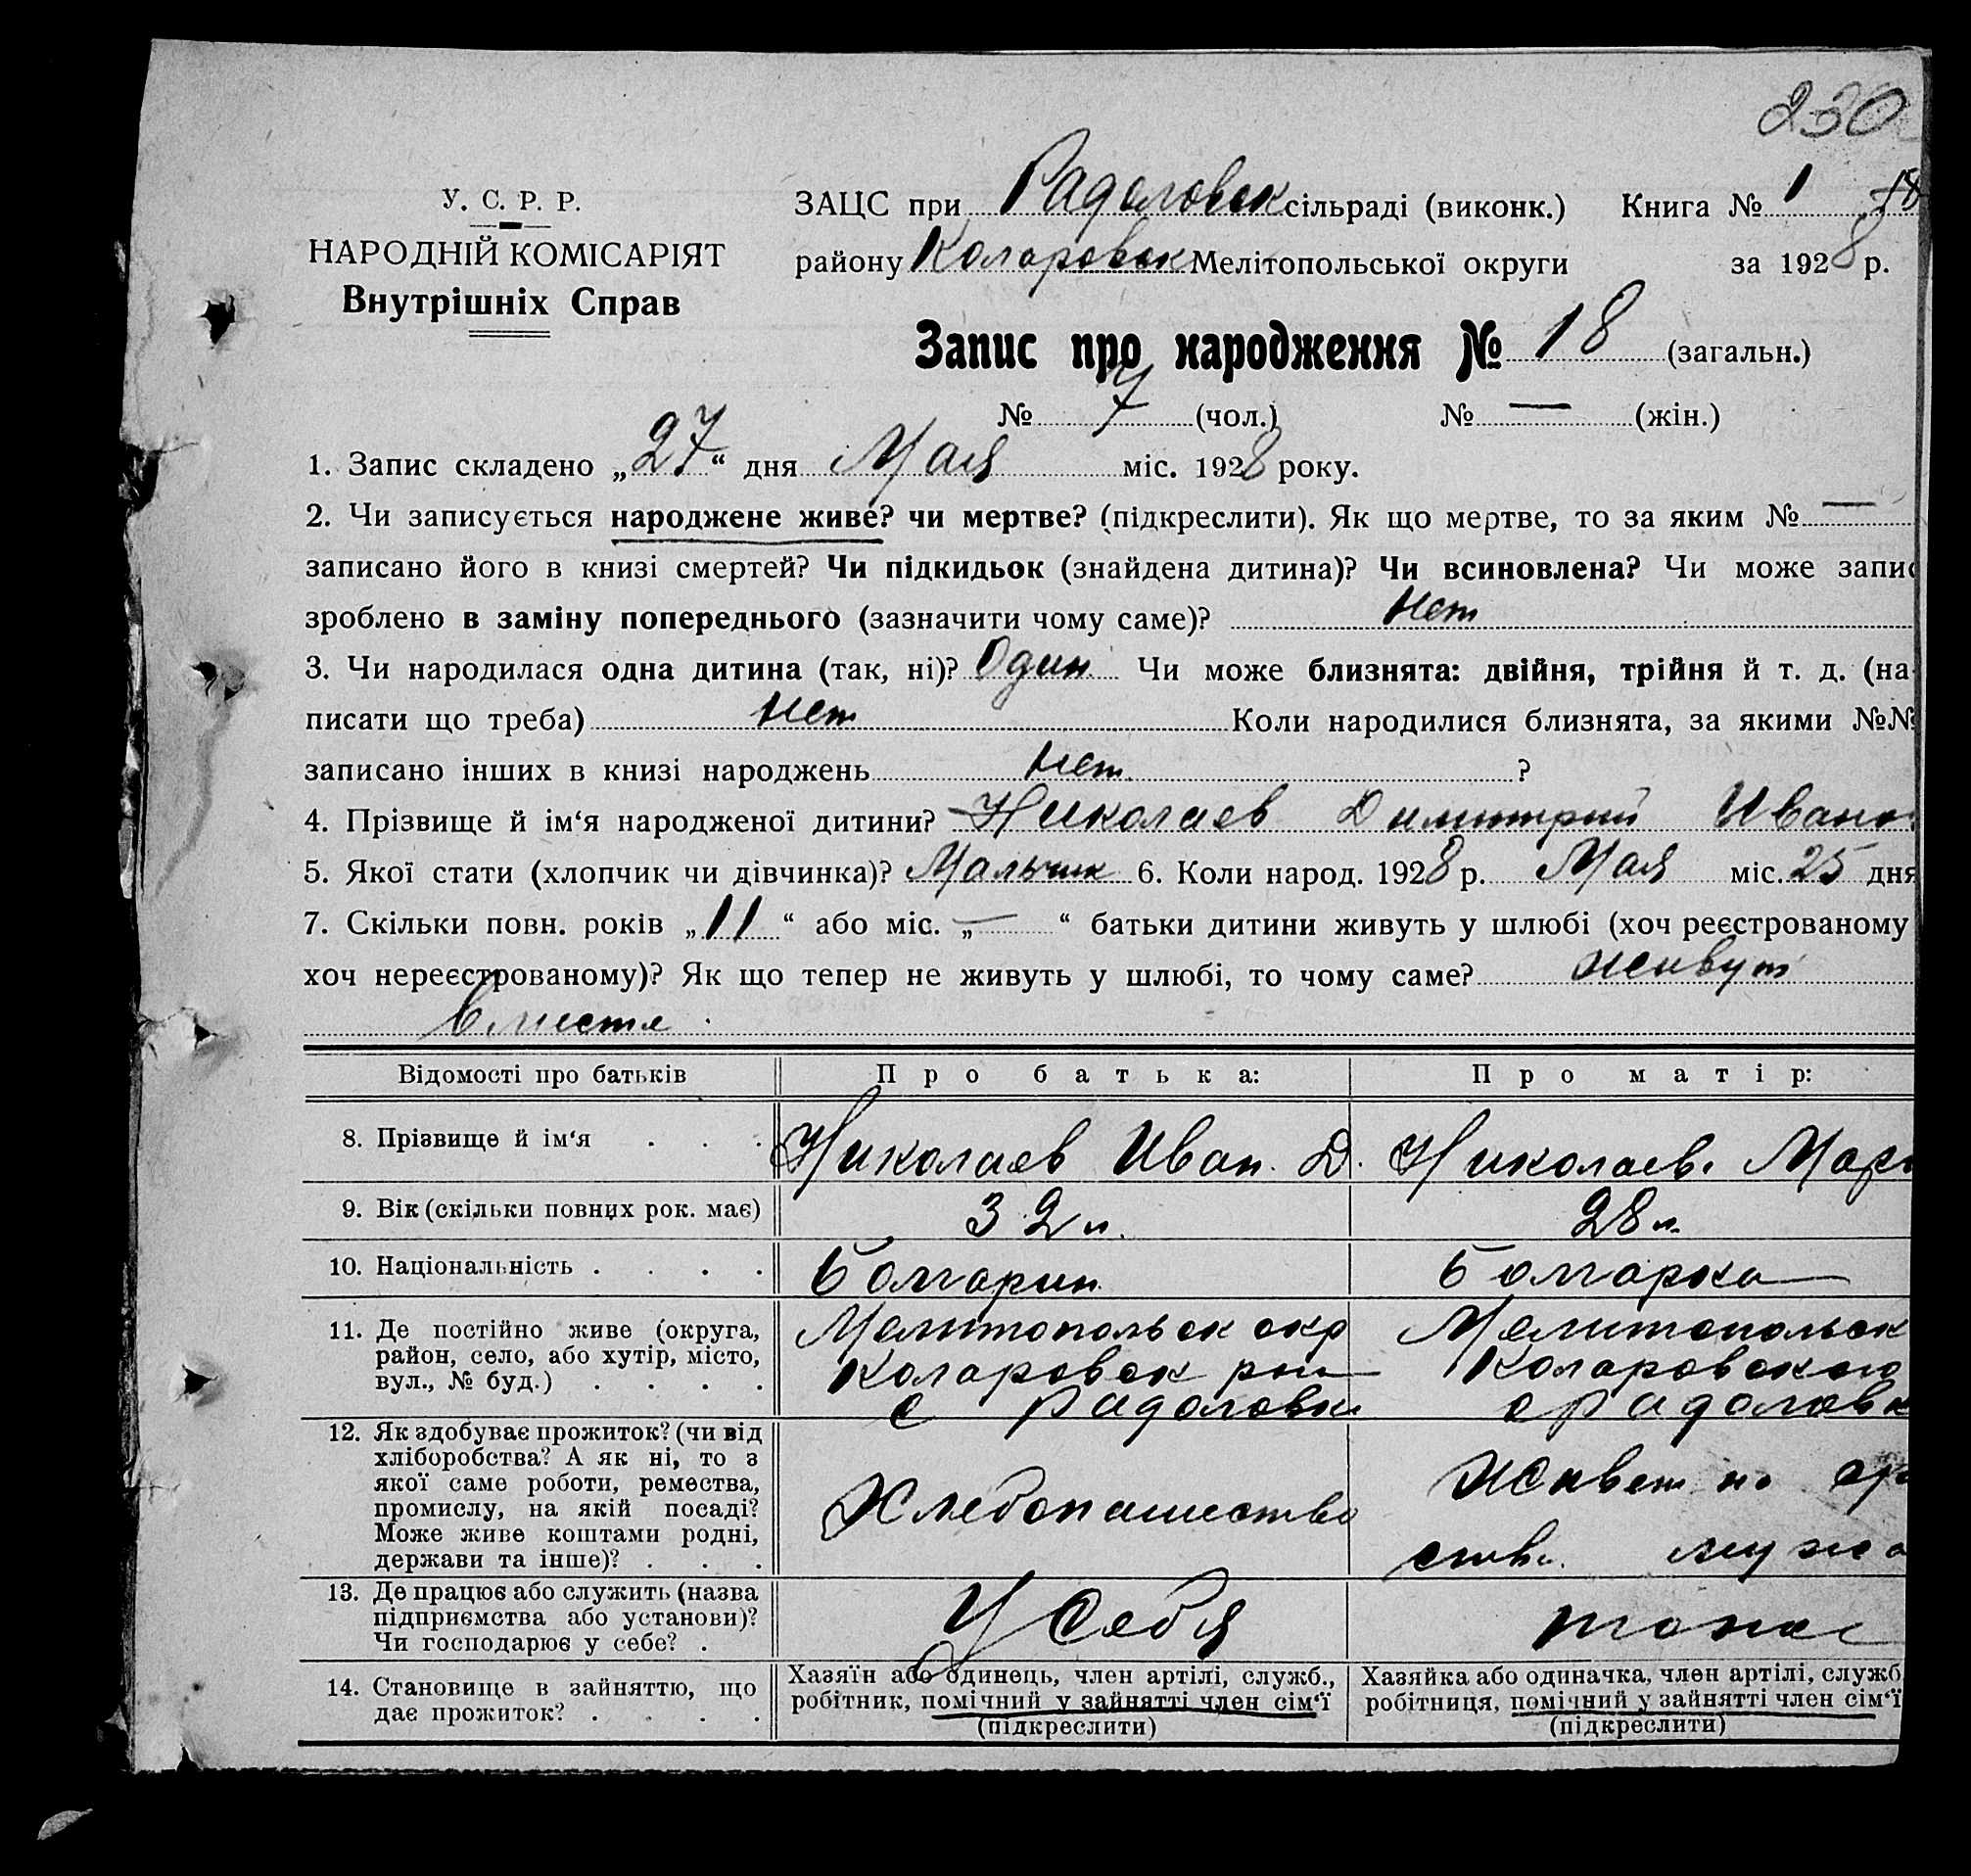 230
У. С. Р. Р.
НАРОДНІЙ КОМІСАРІЯТ
Внутрішніх Справ
ЗАЦС при Радоловск сільраді (виконк.) Книга № 1 18
району Коларовск Мелітопольської округи за 1928 р.
Запис про народження № 18 (загальн.)
№ 7 (чол.) № — (жін.)
1. Запис складено „27“ дня Мая міс. 1928 року.
2. Чи записується народжене живе? чи мертве? (підкреслити). Як що мертве, то за яким № —
записано його в книзі смертей? Чи підкидьок (знайдена дитина)? Чи всиновлена? Чи може запис
зроблено в заміну попереднього (зазначити чому саме)? нет
3. Чи народилася одна дитина (так, ні)? Один Чи може близнята: двійня, трійня й т. д. (на-
писати що треба) нет Коли народилися близнята, за якими №№
записано інших в книзі народжень нет ?
4. Прізвище й ім‘я народженої дитини? Николаев Димитрий Ивано
5. Якої стати (хлопчик чи дівчинка)? Мальчик 6. Коли народ. 1928 р. Мая міс. 25 дня
7. Скільки повн. років „11“ або міс. „—“ батьки дитини живуть у шлюбі (хоч реєстрованому
хоч нереєстрованому)? Як що тепер не живуть у шлюбі, то чому саме? живут
вместе
Відомості про батьків Про батька: Про матір:
8. Прізвище й ім‘я . . . Николаев Иван. Д. Николаев. Мари
9. Вік (скільки повних рок. має) 32 л. 28 л.
10. Національність . . . . Болгарин Болгарка
11. Де постійно живе (округа,
район, село, або хутір, місто,
вул., № буд.) . . . .
Мелитопольск окр
Коларовск рн
с Радоловк
Мелитопольск
Коларовского
с Радоловк
12. Як здобуває прожиток? (чи від
хліборобства? А як ні, то з
якої саме роботи, ремества,
промислу, на якій посаді?
Може живе коштами родні,
держави та інше)? . . .
Хлебопашество
Живет на ср
ства мужа
13. Де працює або служить (назва
підприємства або установи)?
Чи господарює у себе? .
У Себя
тоже
14. Становище в зайняттю, що
дає прожиток? . . . .
Хазяїн або одинець, член артілі, служб.,
робітник, помічний у зайнятті член сім‘ї
(підкреслити)
Хазяйка або одиначка, член артілі, служб
робітниця, помічний у зайнятті член сім‘ї
(підкреслити)